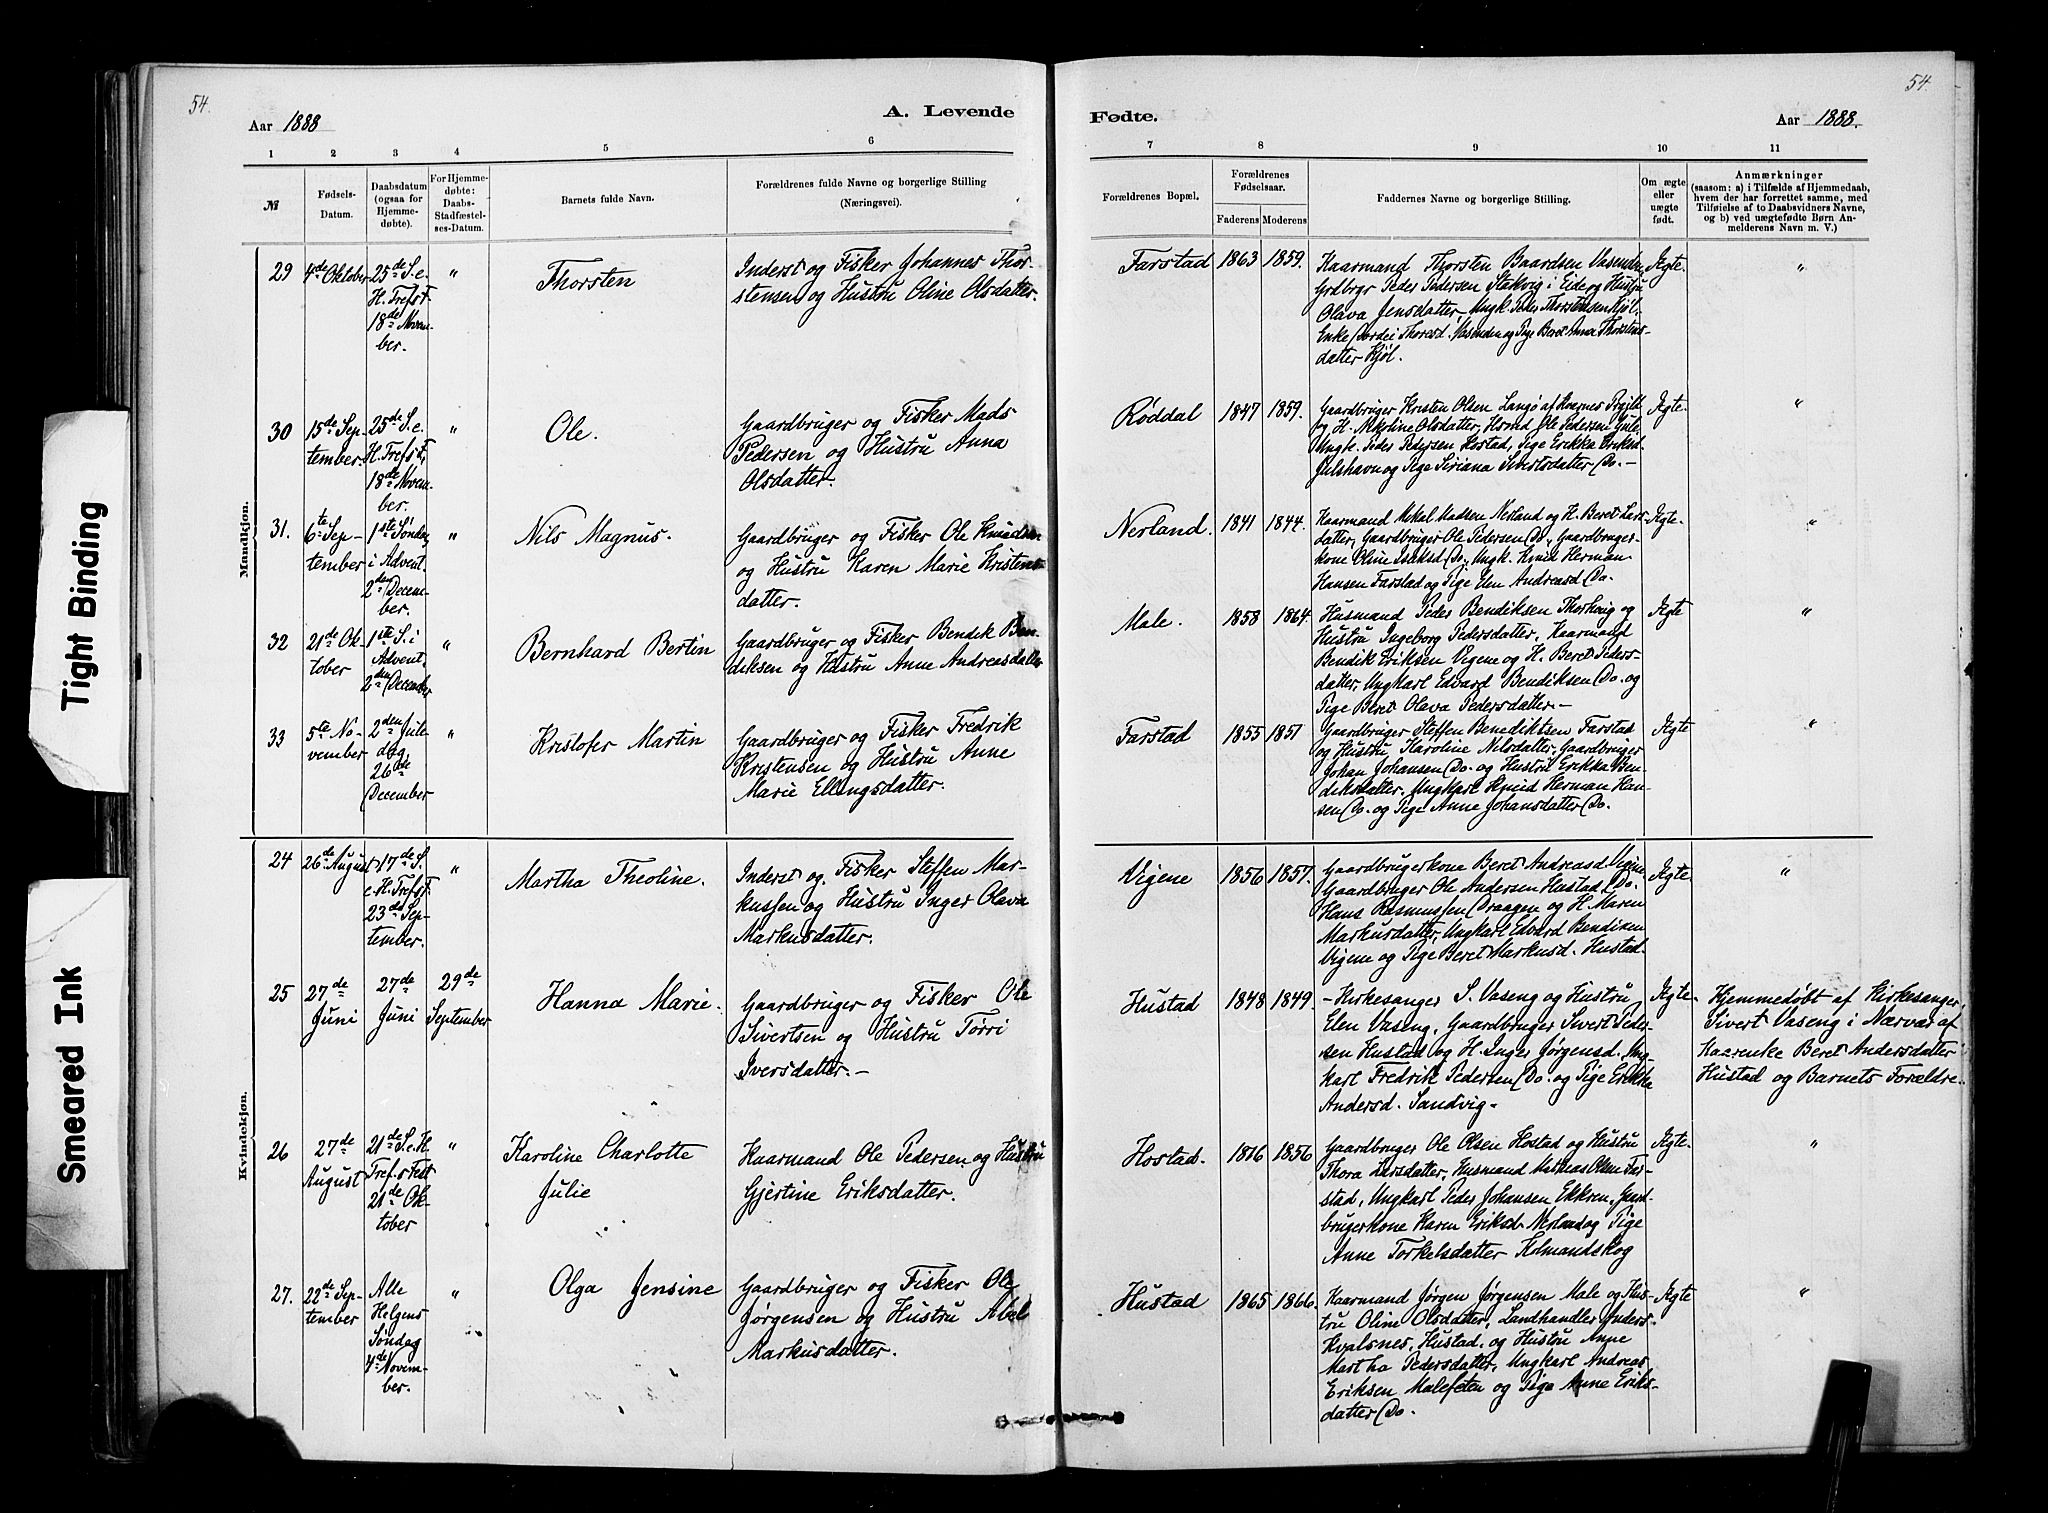 54.
Aar 1888
A. Levende
1 2 3 4 5 6
№
Fødsels-
Datum.
Daabsdatum
(ogsaa for
Hjemme-
døbte).
For Hjemme-
døbte:
Daabs-
Stadfæstel-
ses-Datum.
Barnets fulde Navn.
Forældrenes fulde Navne og borgerlige Stilling
(Næringsvei).
Mandkjøn.
29
4de Oktober
25de S. e.
H. Trefst.
18de Novem-
ber.
"
Thorsten
Inderst og Fisker Johannes Thor-
stensen og Hustru Oline Olsdatter.
30
15de Sep-
tember.
25de S. e.
H. Trefst.
18de Novem-
ber.
"
Ole.
Gaardbruger og Fisker Mads
Pedersen og Hustru Anna
Olsdatter.
31.
6te Sep-
tember
1ste Søndag
i Advent.
2den Decem-
ber.
"
Nils Magnus.
Gaardbruger og Fisker Ole Knudsen
og Hustru Karen Marie Kristens-
datter.
32
21de Ok-
tober
1ste S. i
Advent.
2den December
"
Bernhard Bertin
Gaardbruger og Fisker Bendik Ben-
diksen og Hustru Anne Andreasdatter
33
5te No-
vember
2den Jule-
dag
26de
December
"
Kristofer Martin
Gaardbruger og Fisker Fredrik
Kristensen og Hustru Anne
Marie Ellingsdatter.
Kvindekjøn.
24
26de August
17de S.
e. H. Trefst.
23de Sep-
tember.
"
Martha Theoline.
Inderst og Fisker Steffen Mar-
kussen og Hustru Inger Olava
Markusdatter.
25
27de
Juni
27de
Juni
29de
September
Hanna Marie.
Gaardbruger og Fisker Ole
Sivertsen og Hustru Tørri
Iversdatter.-
26
27de
August
21de S. e. H.
Tref.s Fest
21de Ok-
tober
"
Karoline Charlotte
Julie
Kaarmand Ole Pedersen og Hustru
Gjertine Eriksdatter.
27.
22de Sep-
tember
Alle
Helgens
Søndag
4de Novem-
ber.
"
Olga Jensine
Gaardbruger og Fisker Ole
Jørgensen og Hustru Abel
Markusdatter.
54.
Fødte.
Aar 1888.
7 8 9 10 11
Forældrenes Bopæl.
Forældrenes
Fødselsaar.
Faderens Moderens
Faddernes Navne og borgerlige Stilling.
Om ægte
eller
uægte
født.
Anmærkninger
(saasom: a) i Tilfælde af Hjemmedaab,
hvem der har forrettet samme, med
Tilføielse af to Daabsvidners Navne,
og b) ved uægtefødte Børn An-
melderens Navn m. V.)
Farstad 1863 1859.
Kaarmand Thorsten Baardsen Vasenden
Grdbrgr Peder Pedersen Stakvig i Eide og Hustru
Olava Jensdatter, Ungk. Peder Thorstensen Kjøl,
Enke Thoresd. Vasenden og Pige Beret Anna Thorstens-
datter Kjøl.
Ægte-
"
Røddal 1847 1859.
Gaardbruger Kristen Olsen Langø af Kvernes
og H. Olsdatter, Ole Pedersen
Ungk. Peder Pedersen Hostad, Pige Erikka Eriksd.
Julshavn og Pige Siriana Sivertsdatter Do.-
Ægte-
"
Nerland. 1841 1844.
Kaarmand Mikal Madsen Nerland og H. Beret Lars-
datter, Gaardbruger Ole Pedersen Do, Gaardbruger-
kone Oline Do, Ungk. Knud Herman
Hansen Farstad og Pige Elen Andreasd Do.
Ægte-
"
Male. 1858 1864.
Husmand Peder Bendiksen Thorhoug og
Hustru Ingeborg Pedersdatter, Kaarmand
Bendik Eriksen Vigene og H. Beret Peders-
datter, Ungkarl Edvard Bendiksen Do. og
Pige Beret Olava Pedersdatter.-
Ægte
"
Farstad 1855 1851
Gaardbruger Steffen Benediktsen Farstad
og Hustru Karoline Nilsdatter, Gaardbruger
Johan Johansen Do. og Hustru Erikka Ben-
diksdatter. Ungkarl Knud Herman Han-
sen Do. og Pige Anne Johansdatter Do.
Ægte
"
Vigene 1856 1857.
Gaardbrugerkone Beret Andreasd Vigene,
Gaardbruger Ole Andersen Hustad, Do.
Hans Rasmussen Draagen og H. Maren
Markusdatter, Ungkarl Edvard Bendiksen
Vigene og Pige Beret Markusd. Hustad.
Ægte-
"
Hustad 1848 1849.
- Kirkesanger S. Vaseng og Hustru
Elen Vaseng, Gaardbruger Sivert Peder-
sen Hustad og H. Inger Jørgensd. Ung-
karl Fredrik Pedersen Do. og Pige Erikka
Andersd. Sandvig-
Ægte-
Hjemmedøbt af Kirkesanger
Sivert Vaseng i Nærvær af
Kaarenke Beret Andersdatter
Hustad og Barnets Forældre.
Hostad. 1856
Gaardbruger Ole Olsen Hostad og Hustru
Thora Larsdatter, Husmand Mathias Olsen Far-
stad, Ungkarl Peder Johansen Ekkren, Gaard-
brugerkone Karen Eriksd. Nerland og Pige
Anne Torkelsdatter Holmandskog
Ægte-
"
Hustad 1865 1866.
Kaarmand Jørgen Jørgensen Male og Hus-
tru Oline Olsdatter, Landhandler Anders
Kvalsnes, Hustad, og Hustru Anne
Martha Pedersdatter, Ungkarl Andreas
Eriksen Malefeten og Pige Anne Eriks-
datter Do.
Ægte
"
Tight Binding
Smeared Ink